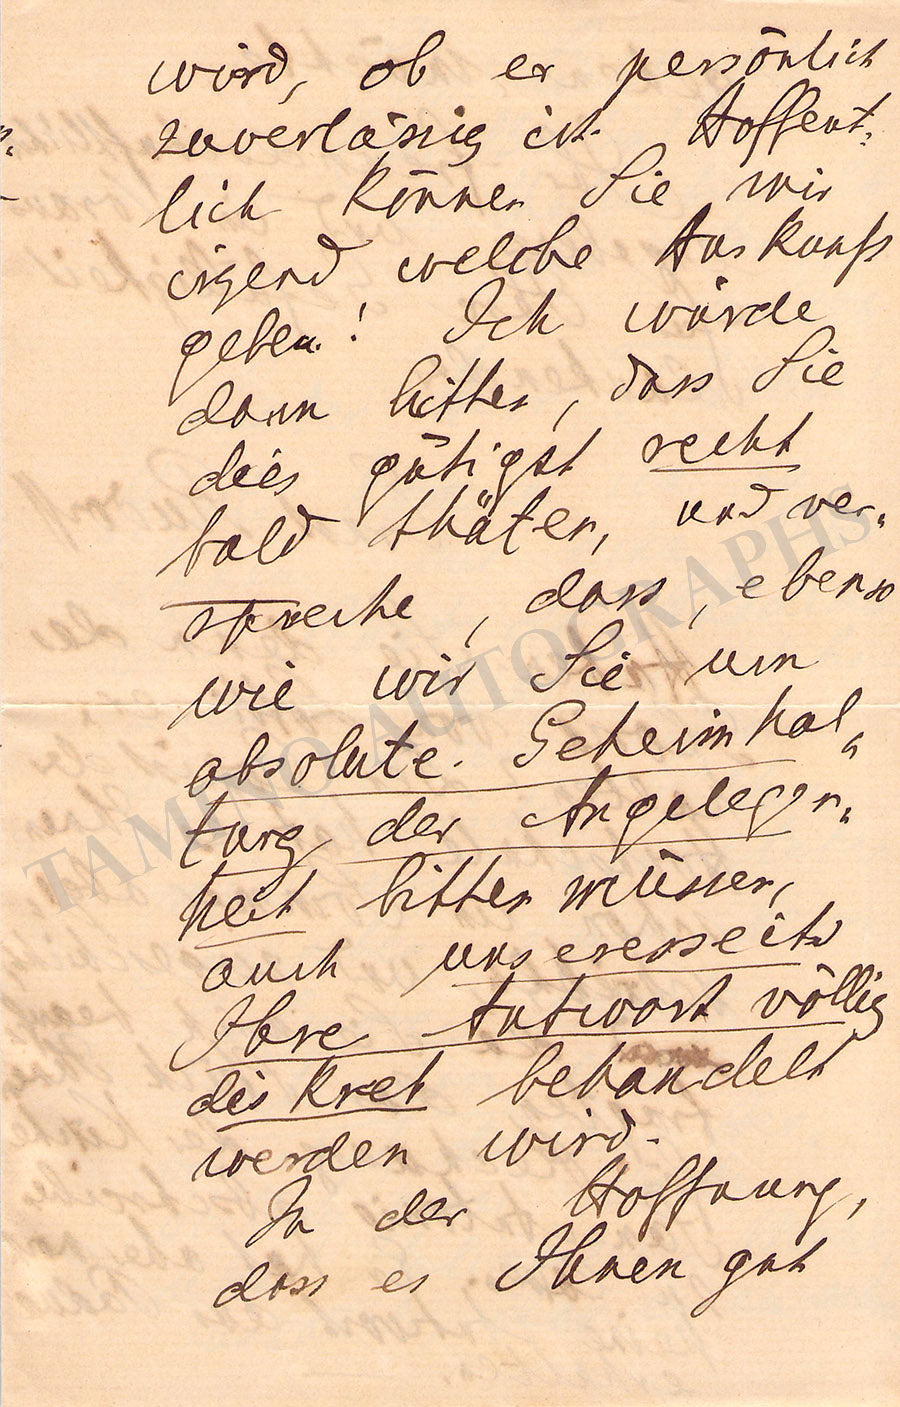 wird, ob er persönlich
zuverlässig ist. Hoffent-
lich können Sie mir
irgend welche Auskunft
geben! Ich würde
dann bitten, dass Sie
dies gütigst recht
bald thäten, und ver-
spreche, dass, ebenso
wie wir Sie um
absolute Geheimhal-
tung der Angelegen-
heit bitten müssen,
auch unsererseits
Ihre Antwort völlig
diskret behandelt
werden wird.
In der Hoffnung,
dass es Ihnen gut
TAMINO AUTOGRAPHS